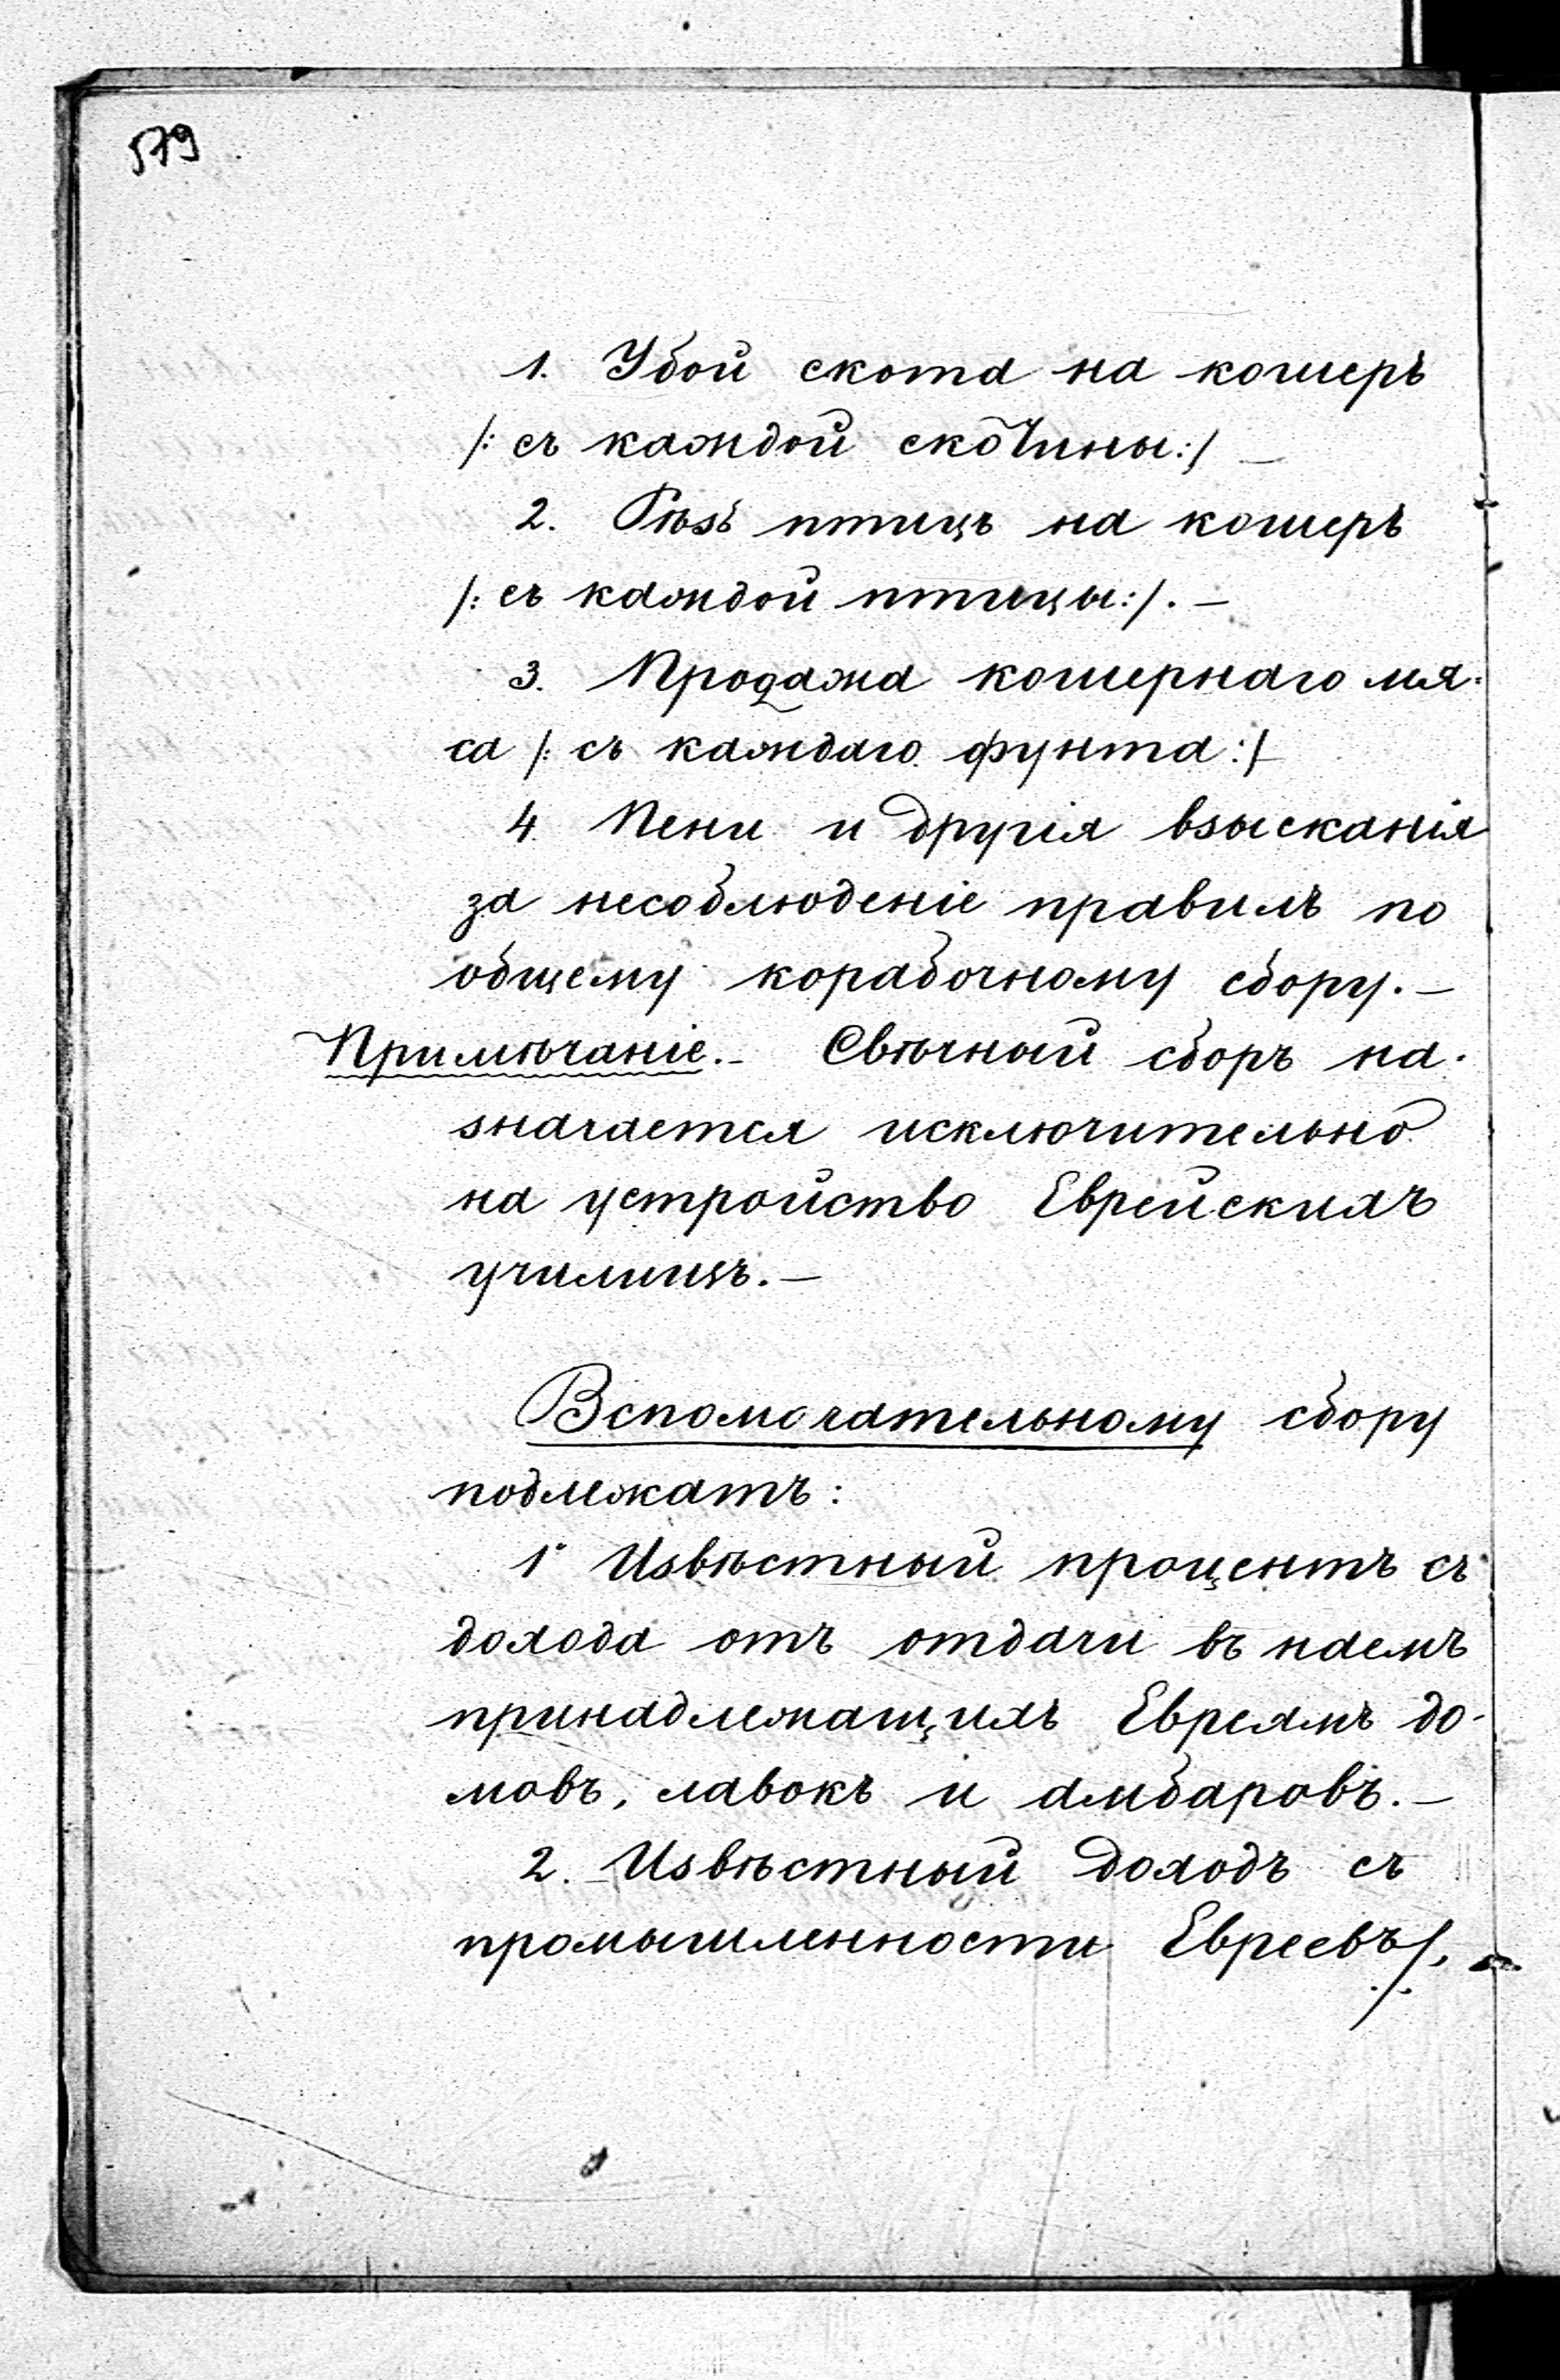 579
1. Убой скота на кошеръ
/: съ каждой скотины :/ —
2. Рѣзъ птицъ на кошеръ
/: съ каждой птицы :/. —
3. Продажа кошернаго мя-
са /: съ каждаго фунта :/
4 Пени и другія взысканія
за несоблюденіе правилъ по
общему корабочному сбору. —
Примѣчаніе. — Свѣчный сборъ на-
значается исключительно
на устройство Еврейскихъ
училищъ. —
Вспомогательному сбору
подлежатъ:
1. Извѣстный процентъ съ
дохода отъ отдачи въ наемъ
принадлежащихъ Евреямъ до-
мовъ, лавокъ и амбаровъ. —
2. Извѣстный доходъ съ
промышленности Евреевъ/.
./.